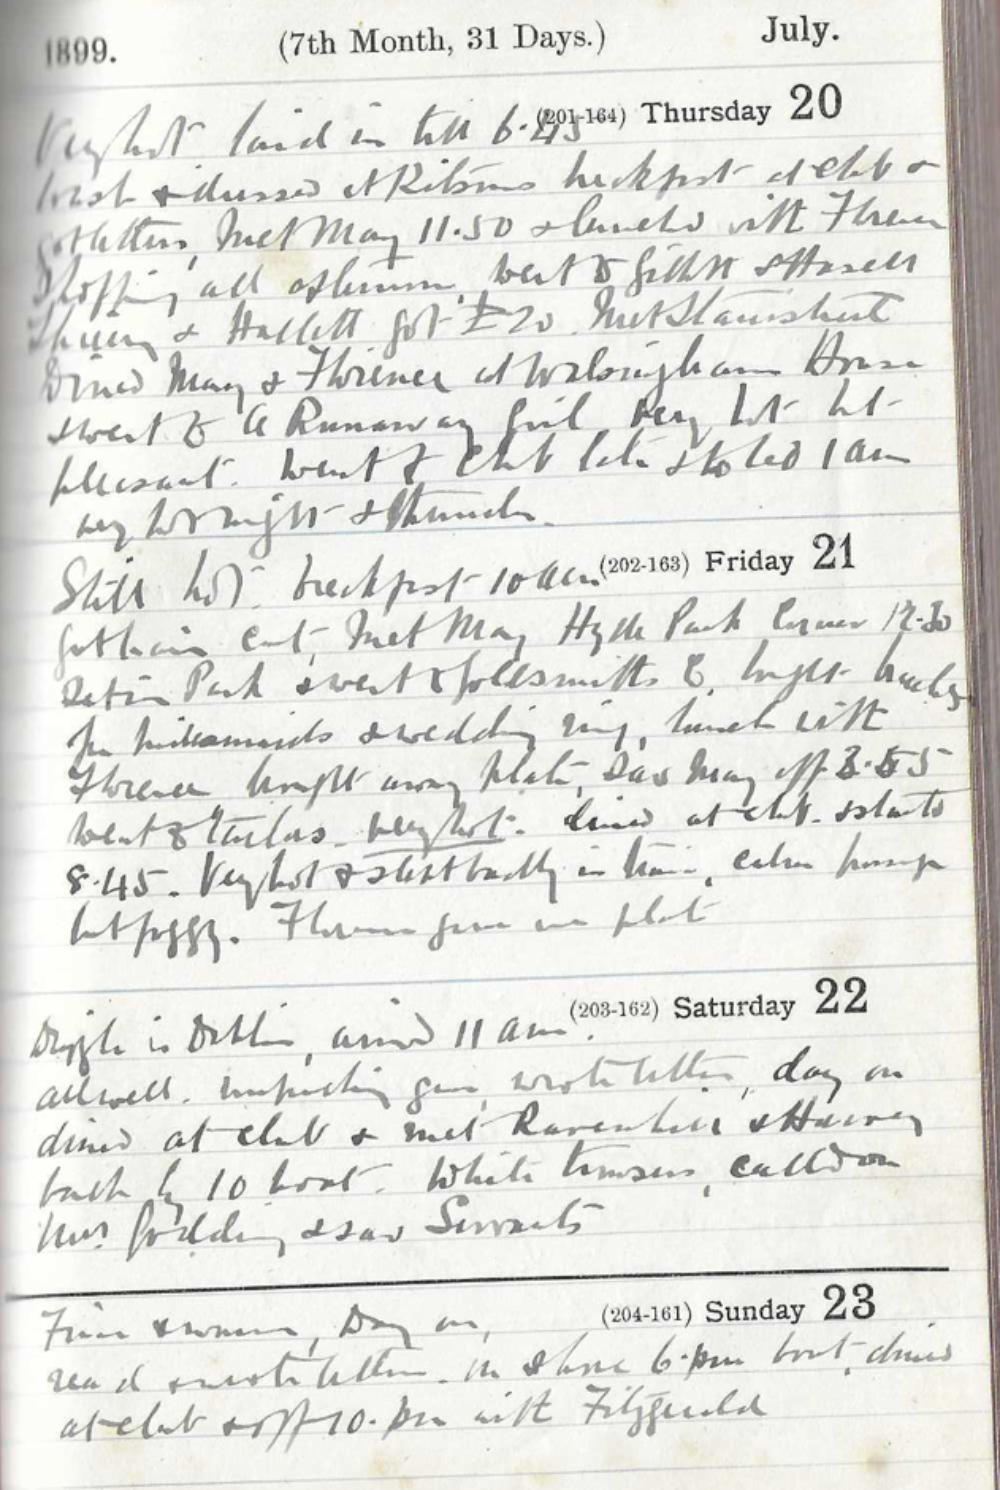 1899. (7th Month, 31 Days.) July.
(201-164) Thursday 20
Very hot laid in till 6.45
wash & dressed at breakfast at club &
got letters, Met May 11.50 & lunched with Florence
Shopping all afternoon, went to & 
& Hallett got £20. Met
Dined May & Florence at Walsingham House
& went to A Runaway Girl very hot but
pleasant. Went to club late & to bed 1 am
very hot night & thunder.
(202-163) Friday 21
Still hot. breakfast 10 am
got hair cut, Met May Hyde Park Corner 12.30
Sat in Park & went to Goldsmiths Co, bought
for bridesmaids & wedding ring, lunch with
Florence bought away plate, saw May off 3.55
went to tailors. very hot. dined at club & started
8.45. Very hot & slept badly in train, calm passage
but foggy. Florence gave me plate
(203-162) Saturday 22
in Dublin, arrived 11 am.
all well. inspecting gun, wrote letters, day on
dined at club & met Ravenhill & Harvey
back by 10 boat. White trousers, called on
Mrs Godding & saw Servants
(204-161) Sunday 23
Fine & warm, Day on,
read & wrote letters. on shore 6.pm boat, dined
at club & off 10.pm with Fitzgerald